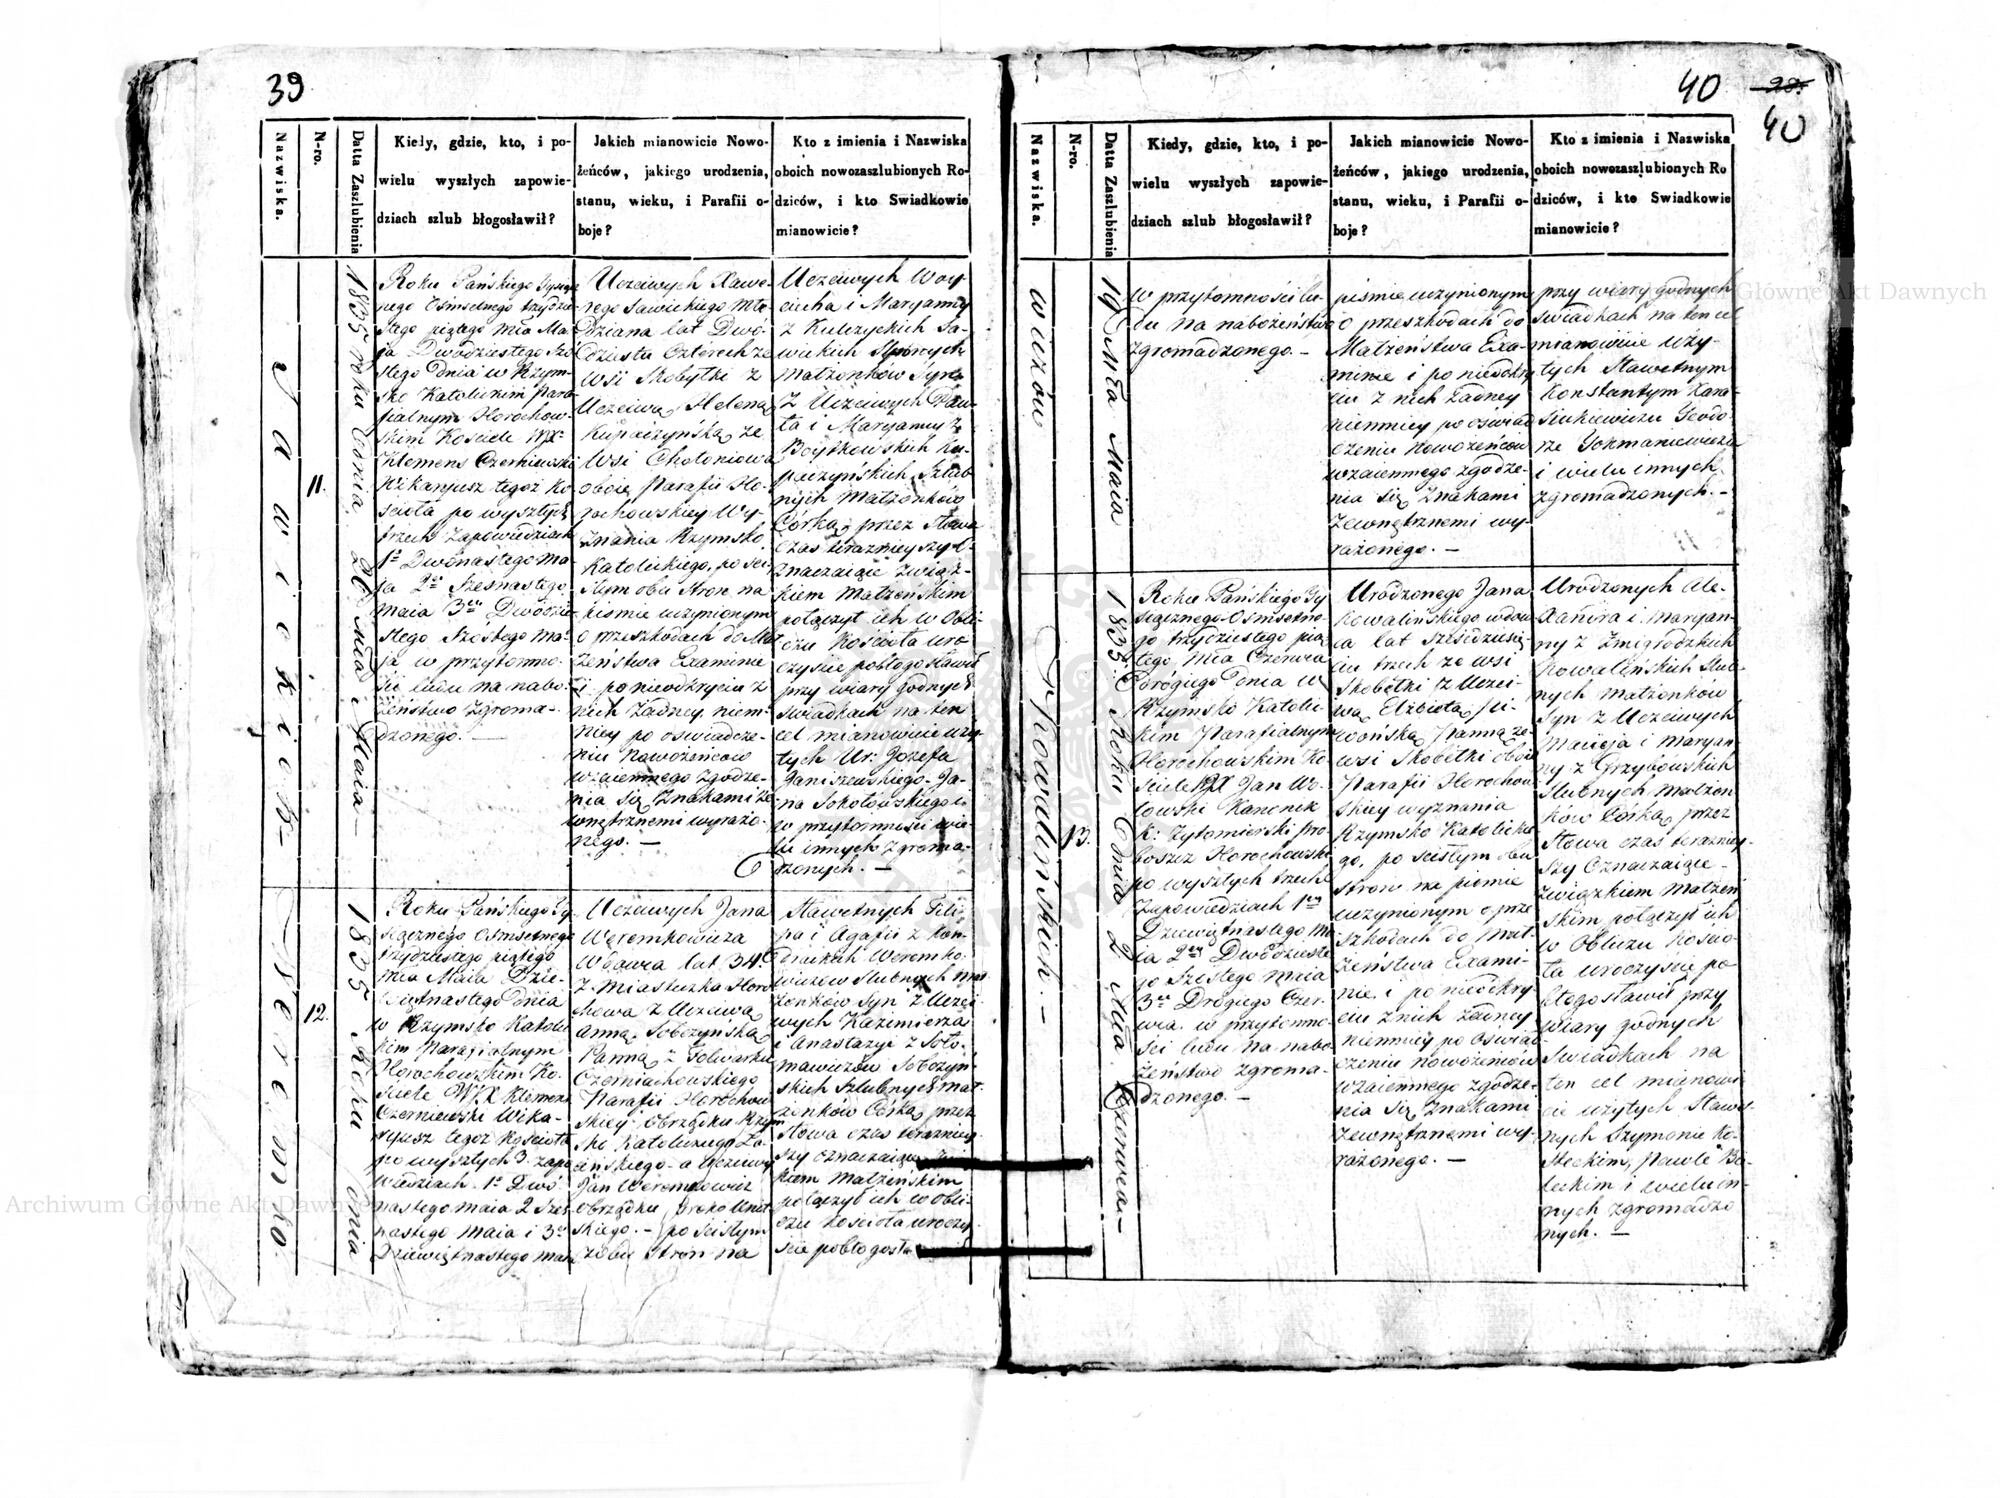 39
Nazwiska.
N-ro.
Datta Zaszlubienia
Kiedy, gdzie, kto, i po-
wielu wyszłych zapowie-
dziach szlub błogosławił?
Jakich mianowicie Nowo-
żeńców, jakiego urodzenia,
stanu, wieku, i Parafii o-
boje?
Kto z imienia i Nazwiska
oboich nowozaszlubionych Ro-
dziców, i kto Swiadkowie
mianowicie?
Sawickich
11.
1835 roku Dnia 26 Mca Maia —
Roku Pańskiego Tysią
cznego Osmsetnego trzydzie
stego piątego Mca Ma
ja Dwudziestego Szó
stego Dnia w Rzym
sko Katolickim Para
fialnym Horochow-
skim Kościele WJX
Klemens Czerniewski
Wikaryusz tegoż Ko
ścioła po wyszłych
trzech Zapowiedziach
1a Dwónastego Ma
ja 2a Szesnastego
Maia 3a Dwódzie
stego Szóstego Ma
ja w przytomno-
ści ludu na nabo-
żeństwo Zgroma-
dzonego. —
Uczciwych Xawe-
rego Sawickiego Mło
dziana lat Dwó-
dziestu Czterech ze
Wsi Skobyłki z
Uczciwą Heleną
Kupaczyńską ze
Wsi Chołoniowa
oboie Parafii Ho-
rochowskiey Wy-
znania Rzymsko
Katolickiego, po ści-
słym obu Stron na
piśmie uczynionym
o przeszkodach do Mał
żeństwa Examinie
i po nieodkryciu z
nich żadney, niem-
niey po oświadcze-
niu Nowożeńców
wzaiemnego Zgodze-
nia się Znakami Ze
wnętrznemi wyrażo-
nego. —
Uczciwych Woy-
ciecha i Maryanny
z Kulczyckich Sa-
wickich Slubnych
Małżonków Syna
z Uczciwych Paw-
ła i Maryanny z
Boytkowskich Ku-
paczyńskich, Szlub-
nych Małżonków
Córką, przez Słowa
czas teraznieyszy O-
znaczaiące związ-
kiem Małżeńskim
połączył ich w Obli-
czu Kościoła uro
czyście pobłogosławił
przy wiary godnych
Swiadkach na ten
cel mianowicie uży-
tych Ur: Jozefa
Janiszewskiego Ja-
na Sokołowskiego i
w przytomności wie-
lu innych Zgroma-
dzonych. —
Weremko
12.
1835 Roku Dnia
Roku Pańskiego Ty
siącznego Osmsetnego
trzydziestego piątego
Mca Maia Dzie-
więtnastego Dnia
w Rzymsko Katolic
kim Parafialnym
Horochowskim Ko-
ściele WJX Klemens
Czerniewski Wika-
ryusz tegoż Kościoła
po wyszłych 3. zapo
wiedziach 1a Dwó
nastego Maia 2 Szes
nastego Maia i 3a
Dziewiętnastego Maia
Uczciwych Jana
Weremkowicza
Wdowca lat 34.
z Miasteczka Horo
chowa z Uczciwą
Anną Sobczyńską
Panną z Folwarku
Czerniachowskiego
Parafii Horochow
skiey Obrządku Rzym
sko Katolickiego Ła-
cińskiego - a Uczciwy
Jan Weremkowicz
Obrządku Greko Unit
skiego. — po ścisłym
z obu Stron na
Sławetnych Fili-
pa i Agafii z Kon-
drackich Weremko-
wiczów Slubnych Mał
żonków Syn z Uczci
wych Kazimierza
i Anastazyi z Soło-
mawiczów Sobczyń-
skich Szlubnych Mał-
żonków Córką, przez
słowa czas teraźniey-
szy oznaczaiące
kiem Małżeńskim
połączył ich w Obli-
czu Kościoła uroczy-
ście pobłogosła
40
28.
40
Nazwiska.
N-ro.
Datta Zaszlubienia
Kiedy, gdzie, kto, i po-
wielu wyszłych zapowie-
dziach szlub błogosławił?
Jakich mianowicie Nowo-
żeńców, jakiego urodzenia,
stanu, wieku, i Parafii o-
boje?
Kto z imienia i Nazwiska
oboich nowozaszlubionych Ro
dziców, i kto Swiadkowie
mianowicie?
wiczów
19 Mca Maia
w przytomności lu-
du na nabożeństwo
zgromadzonego. —
piśmie uczynionym
o przeszkodach do
Małżeństwa Exa-
minie i po nieodkry
ciu z nich żadney
niemniey po oświad
czeniu Nowożeńców
wzaiemnego zgodze-
nia się Znakami
Zewnętrznemi wy-
rażonego. —
przy wiary godnych
swiadkach na ten cel
mianowicie uży-
tych Sławetnym
Konstantym Kara-
sinkiewiczu Teodo-
rze Tokmaniewiczu
i wielu innych
zgromadzonych. —
Kowalińskich. —
13.
1835 Roku Dnia 2 Mca Czerwca —
Roku Pańskiego Ty
siącznego Osmsetne-
go trzydziestego pią
tego Mca Czerwca
Drógiego Dnia w
Rzymsko Katolic
kim Parafialnym
Horochowskim Ko
ściele JX Jan Wo-
łowski Kanonik
K: Żytomierski Pro
boszcz Horochowski
po wyszłych trzech
Zapowiedziach 1ey
Dziewiętnastego Ma
ia 2ey Dwódzieste
go Szóstego Maia
3a Drógiego Czer-
wca w przytomno-
ści ludu na nabo-
żeństwo zgroma-
dzonego. —
Urodzonego Jana
Kowalińskiego wdow
ca lat sześćdziesię
ciu trzech ze wsi
Skobełki z Uczci-
wą Elżbietą
Panną ze
wsi Skobełki oboie
Parafii Horochow
skiey wyznania
Rzymsko Katolickie
go, po ścisłym obu
stron na piśmie
uczynionym o prze
szkodach do Mał-
żeństwa Exami-
nie, i po nieodkry-
ciu z nich żadney
niemniey po Oświad
czeniu Nowożeńców
wzaiemnego zgodze-
nia się Znakami
Zewnętrznemi wy-
rażonego. —
Urodzonych Ale-
xandra i Maryan-
ny z Żmigrodzkich
Kowalińskich Slub-
nych Małżonków
Syn z Uczciwych
Macieja i Maryan-
ny z Grzybowskich
Slubnych Małżon
ków Córką, przez
Słowa czas teraźniey-
szy Oznaczaiące
związkiem Małżeń
skim połączył ich
w Obliczu Kościo-
ła uroczyście po
błogosławił przy
wiary godnych
Swiadkach na
ten cel mianowi
cie użytych Sławe-
nych Szymonie Ko-
steckim, Pawle Ba-
leckim i wielu in-
nych zgromadzo
nych. —
Archiwum Główne Akt Dawnych
Główne Akt Dawnych